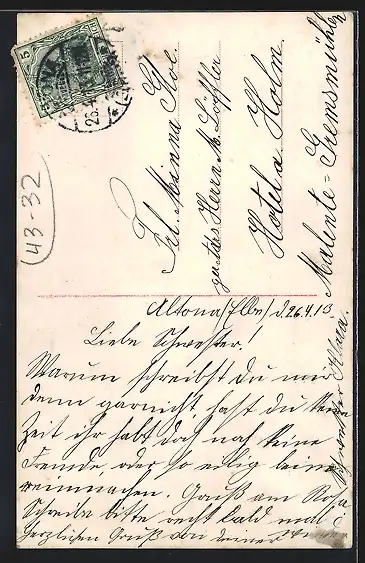 5
26.4.
43-32
Frl. Minna Stol.
Herrn M. Löffler
Hotel a. Holm.
Malente=Gremsmühlen
Altona/Elbe/ d. 26.4.13
Liebe Schwester!
Warum schreibst Du mir
denn garnicht, hast Du keine
Zeit ihr habt doch noch keine
Fremde, oder so eilig beim
reinmachen. Gruß an Rosa
Schreibe bitte recht bald mal
Herzlichen Gruß von deiner